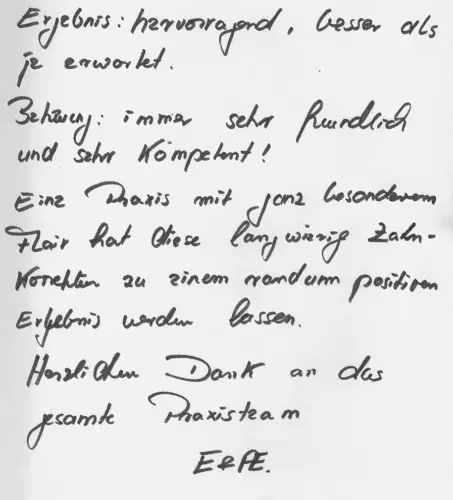 Ergebnis: hervorragend, besser als
je erwartet.
Betreung: immer sehr freundlich
und sehr Kompetent!
Eine Praxis mit ganz besonderem
Flair hat diese langwierige Zahn-
Korrektur zu einem rundum positiven
Ergebnis werden lassen.
Herzlichen Dank an das
gesamte Praxisteam